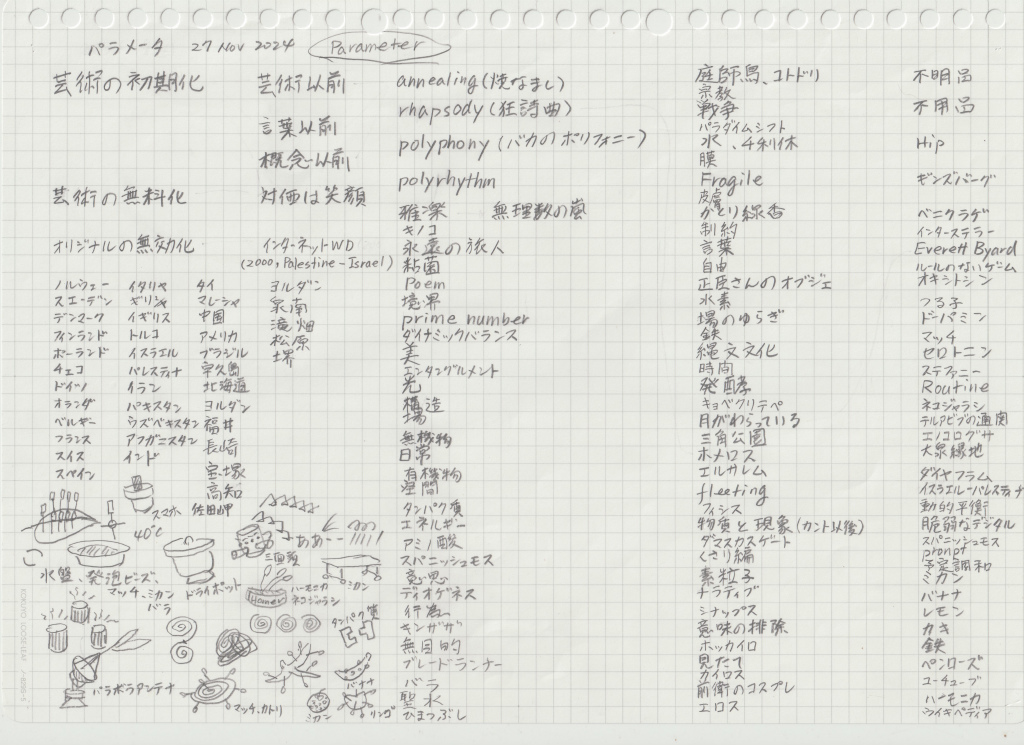 パラメータ 27 Nov 2024 Parameter
芸術の初期化
芸術の無料化
オリジナルの無効化
ノルウェー イタリヤ タイ
スエーデン ギリシャ マレーシャ
デンマーク イギリス 中国
フィンランド トルコ アメリカ
ポーランド イスラエル ブラジル
チェコ パレスティナ 宇久島
ドイツ イラン 北海道
オランダ パキスタン ヨルダン
ベルギー ウズベキスタン 福井
フランス アフガニスタン 長崎
スイス インド
宝塚
スペイン
高知
スマホ 佐田岬
芸術以前
言葉以前
概念以前
対価は笑顔
インターネットWD
(2000, Palestine-Israel)
ヨルダン
泉南
滝畑
松原
堺
annealing(焼なまし)
rhapsody(狂詩曲)
polyphony(バカのポリフォニー)
polyrhythm
雅楽 無理数の嵐
キノコ
永遠の旅人
粘菌
Poem
境界
prime number
ダイナミックバランス
美
エンタングルメント
光
構造
場
無機物
日常
有機物
空間
タンパク質
エネルギー
アミノ酸
スパニッシュモス
意思
ディオゲネス
行為
キンザザ
無目的
ブレードランナー
バラ
聖水
ひまつぶし
庭師鳥、コトドリ
宗教
戦争
パラダイムシフト
水、千利休
膜
Fragile
皮膚
かとり線香
制約
言葉
自由
正臣さんのオブジェ
水素
場のゆらぎ
鉄
縄文文化
時間
発酵
キョベクリテペ
月がわらっている
三角公園
ホメロス
エルサレム
fleeting
フィシス
物質と現象(カント以後)
ダマスカスゲート
くさり編
素粒子
ナラティブ
シナップス
意味の排除
ホッカイロ
見たて
カイロス
前衛のコスプレ
エロス
不明呂
不用呂
Hip
ギンズバーグ
ベニクラゲ
インターステラー
Everett Byard
ルールのないゲーム
オキシトシン
つる子
ドーパミン
マッチ
セロトニン
ステファニー
Routine
ネコジャラシ
テルアビブの通関
エノコログサ
大泉緑地
ダイヤフラム
イスラエルーパレスティナ
動的平衡
脆弱なデジタル
スパニッシュモス
pronpt
予定調和
ミカン
バナナ
レモン
カキ
鉄
ペンローズ
ユーチューブ
ハーモニカ
ウイキペディア
40℃
水盤、発泡ビーズ、
マッチ、ミカン
バラ
ドライポット
ああーー
三面鏡
ミカン
Homer
ハーモニカ
ネコジャラシ
タンパク質
パラボラアンテナ
マッチ、カトリ
ミカン
バナナ
リンゴ
KOKUYO LOOSE-LEAF